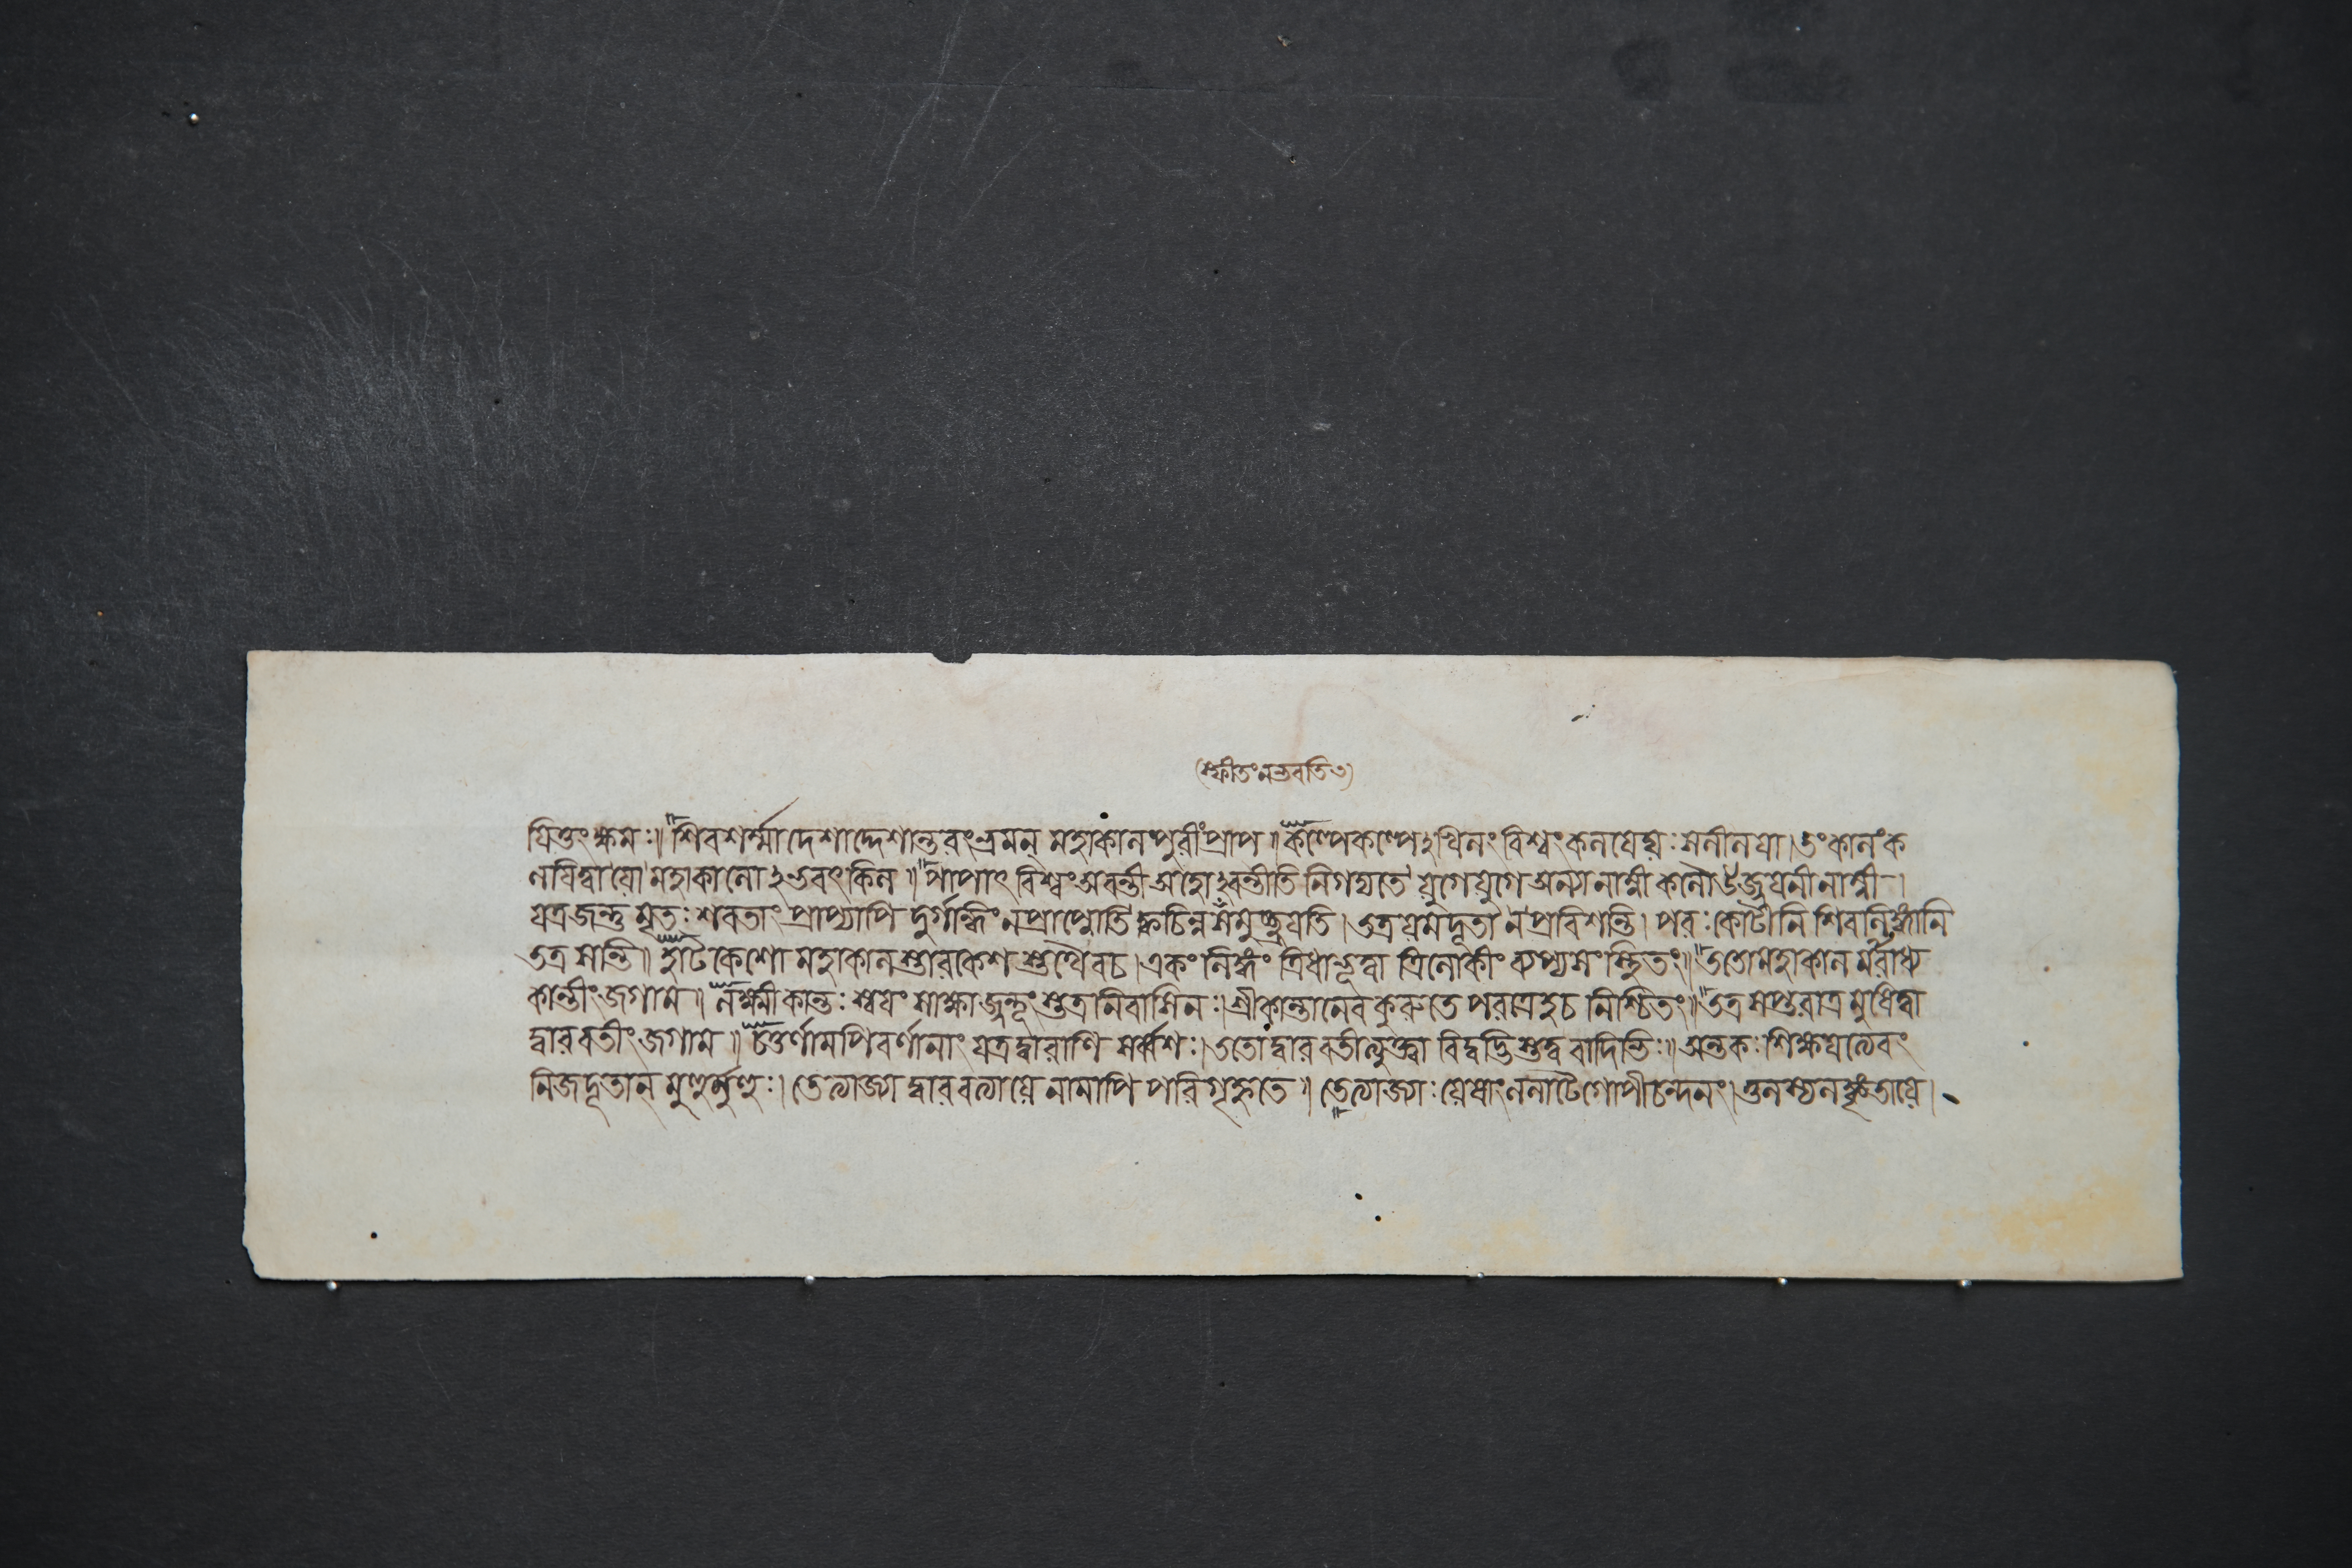 (স্ফীতংনভবতি৩)
য়িতুংক্ষমঃ॥শিবশর্ম্মাদেশাদ্দেশান্তরংভ্রমন্ মহাকালপুরীংপ্রাপ॥কল্পেকল্পেঽখিলংবিশ্বংকলয়েদ্যঃসলীলয়া।তংকালংক
লয়িত্বা যো মহাকালোঽভবৎকিল॥পাপাৎবিশ্বংঅবন্তীঅহোঽবন্তীতিনিগদ্যতে যুগেযুগেঅন্যনাম্নী কলৌউজ্জয়নীনাম্নী।
যত্রজন্তুমৃতঃশবতাং প্রাপ্যাপি দুর্গন্ধিং নপ্রাপ্নোতি ক্বচিন্ন সমুচ্ছ্রয়েতি।তত্রযমদূতা নপ্রবিশন্তি। পরঃকোটীনি শিবলিঙ্গানি
তত্র সন্তি॥হাটকেশো মহাকালস্তারকেশস্তথৈবচ।একংলিঙ্গং ত্রিধাভূত্বা ত্রিলোকীং ব্যাপ্যসংস্থিতং॥ততোমহাকালমারাধ্য
কান্তীংজগাম॥লক্ষ্মীকান্তঃস্বয়ং সাক্ষাজ্জন্তূংস্তত্রনিবাসিনঃ।শ্রীকান্তানেবকুরুতে পরত্রেহচ নিশ্চিতং॥তত্রসপ্তরাত্রমুষিত্বা
দ্বারবতীংজগাম॥চতুর্ণামপিবর্ণানাং যত্রদ্বারাণি সর্ব্বশঃ।ততো দ্বারবতীত্যুক্ত্বা বিদ্বদ্ভিস্তত্ববাদিভিঃ॥অন্তকঃশিক্ষয়ত্যেবং
নিজদূতান্ মুহুর্মুহুঃ।তেত্যাজ্যা দ্বারবত্যা যে নামাপি পরিগৃহ্ণতে॥তেত্যাজ্যাঃযেষাংললাটেগোপীচন্দনং।তুলস্যলঙ্কৃতা যে।